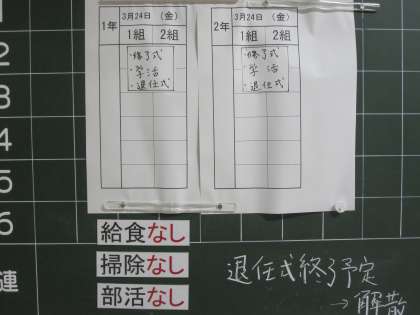 1年
3月24日 (金)
1組 2組
・修了式
・学活
・退任式
2年
3月24日 (金)
1組 2組
・修了式
・学活
・退任式
2
3
4
5
6
連
給食なし
掃除なし
部活なし
退任式終了予定
→解散